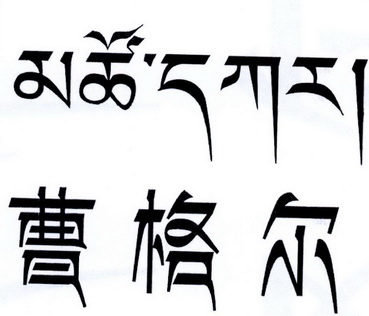 མཚོ་དཀར།
曹格尔